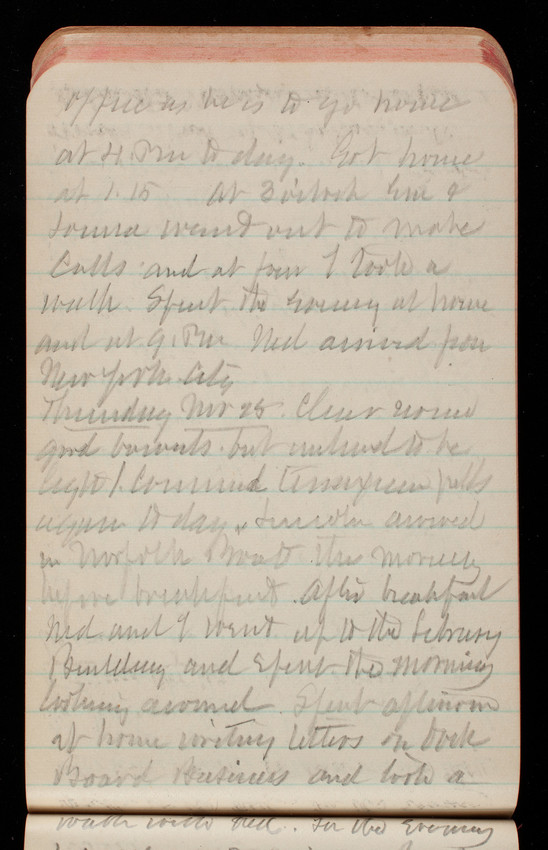 office as he is to go home
at 4 Pm to day. Got home
at 1.15 At 3 oclock Eve &
Louise went out to make
Calls and at four I took a
walk. Spent the evening at home
and at 9. Pm Ned arrived from
New York City
Thursday Nov 25. Clear some
good but inclined to be
I Commenced pills
again to day. Lincoln arrived
in Norfolk Boat this morning
before breakfast. After breakfast
Ned and I went up to the Library
Building and Spent the morning
looking around. Spent afternoon
at home writing letters on Dock
Board Business and took a
walk with Ned. In the evening